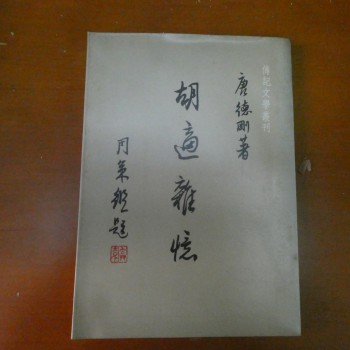 傳記文學叢刊
唐德剛著
胡適雜憶
周策縱題